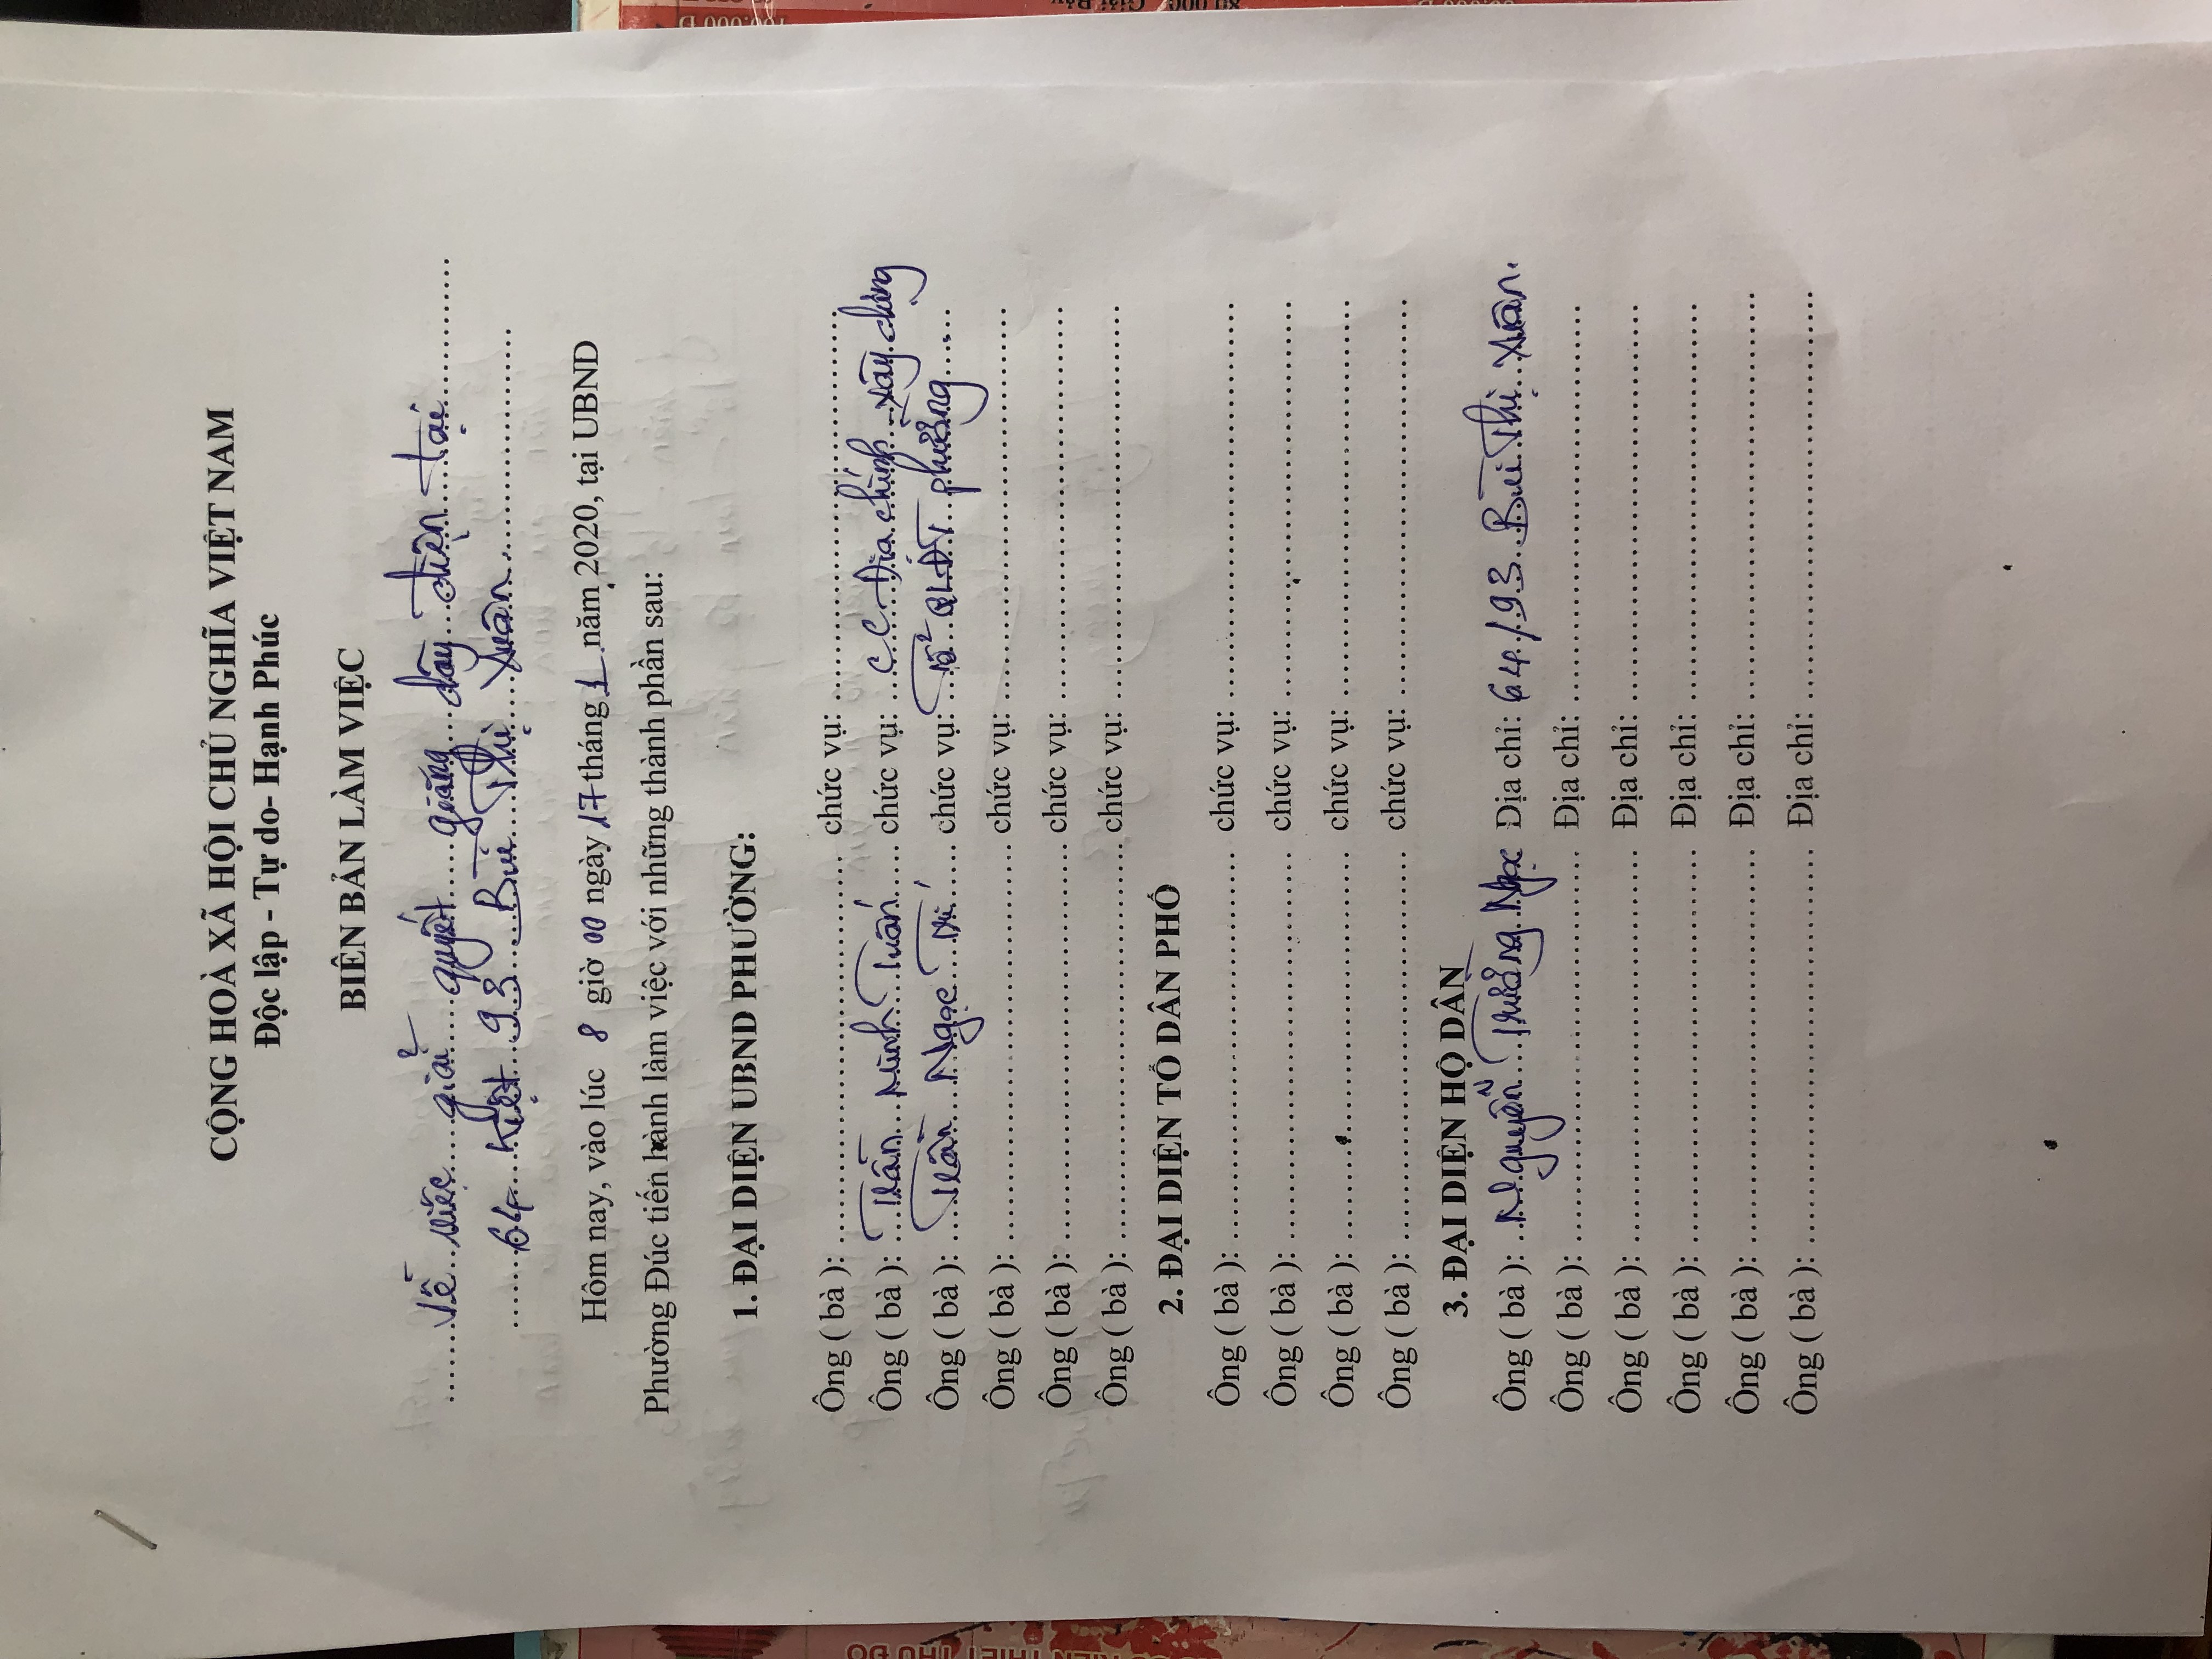 CỘNG HOÀ XÃ HỘI CHỦ NGHĨA VIỆT NAM
Độc lập - Tự do- Hạnh Phúc
BIÊN BẢN LÀM VIỆC
Về việc giải quyết giăng dây điện tại
64 Kiệt 93 Bùi Thị Xuân.
Hôm nay, vào lúc 8 giờ 00 ngày 17 tháng 1 năm 2020, tại UBND
Phường Đúc tiến hành làm việc với những thành phần sau:
1. ĐẠI DIỆN UBND PHƯỜNG:
Ông ( bà ): chức vụ:
Ông ( bà ): Trần Minh Tuấn chức vụ: C.C Địa chính xây dựng
Ông ( bà ): Trần Ngọc Trí chức vụ: Tổ QLĐT phường
Ông ( bà ): chức vụ:
Ông ( bà ): chức vụ:
Ông ( bà ): chức vụ:
2. ĐẠI DIỆN TỔ DÂN PHỐ
Ông ( bà ): chức vụ:
Ông ( bà ): chức vụ:
Ông ( bà ): chức vụ:
Ông ( bà ): chức vụ:
3. ĐẠI DIỆN HỘ DÂN
Ông ( bà ): Nguyễn Trường Ngọc Địa chỉ: 64/93 Bùi Thị Xuân.
Ông ( bà ): Địa chỉ:
Ông ( bà ): Địa chỉ:
Ông ( bà ): Địa chỉ:
Ông ( bà ): Địa chỉ:
Ông ( bà ): Địa chỉ: